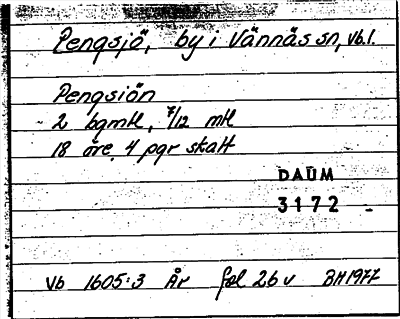 Pengsjö, by i Vännäs sn, Vb.l.
Pengsiön
2 bgmtl, 7/12 mtl
18 öre 4 pgr skatt
DAUM
3172
Vb 1605:3 År fol 26 v BH1977